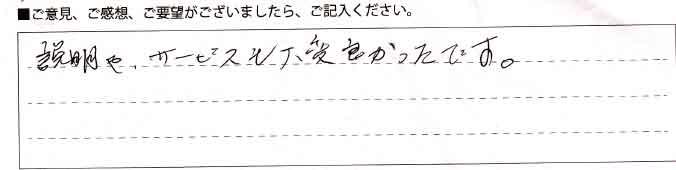 ■ご意見、ご感想、ご要望がございましたら、ご記入ください。
説明や、サービスも大変良かったです。